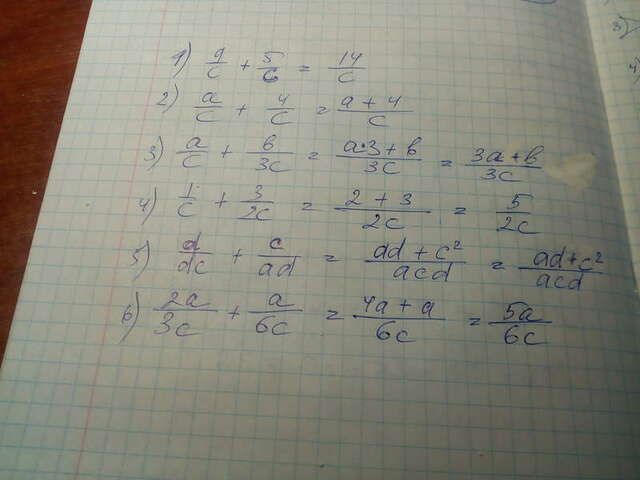 1) 9/c + 5/c = 14/c
2) a/c + 4/c = a + 4/c
3) a/c + b/3c = a·3 + b/3c = 3a + b/3c
4) 1/c + 3/2c = 2 + 3/2c = 5/2c
5) d/dc + c/ad = ad + c²/acd = ad + c²/acd
6) 2a/3c + a/6c = 4a + a/6c = 5a/6c